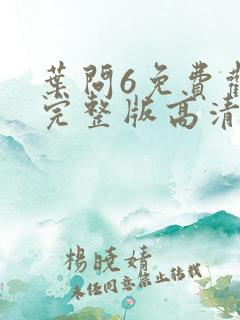 葉問6免費觀
完整版高清
楊曉婧
未經同意禁止轉載